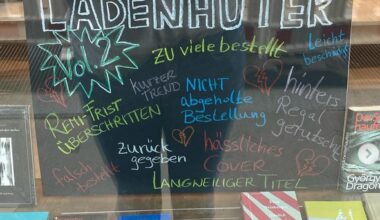 LADENHÜTER
Vol. 2
zu viele bestellt
Leicht
beschädigt
kurzer
TREND
NICHT
abgeholte
Bestellung
hinters
Regal
gerutscht
REMI-FRIST
ÜBERSCHRITTEN
zurück
gegeben
hässliches
COVER
falsch
bestellt
LANGWEILIGER TITEL
György
Dragomán